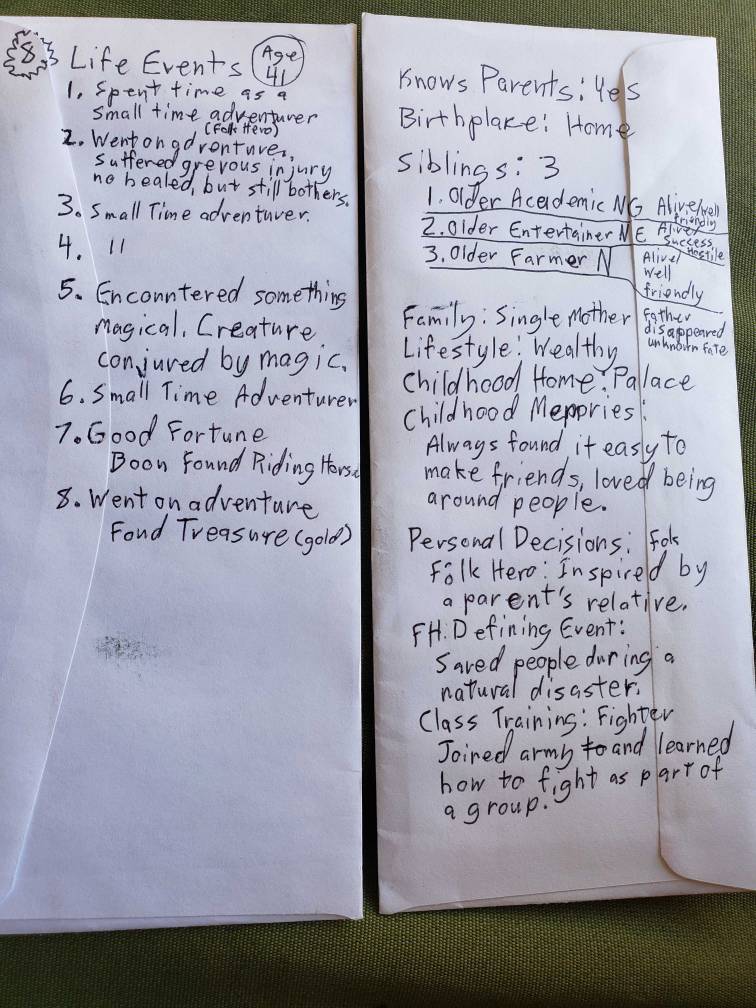 8
Life Events
Age
41
1. Spent time as a
small time adventurer
(Folk Hero)
2. Went on adventure,
suffered grevous injury
no healed, but still bothers.
3. Small Time adventurer.
4. 11
5. Encountered something
Magical. Creature
conjured by magic.
6. Small Time Adventurer
7. Good Fortune
Boon Found Riding Horse
8. Went on adventure
Fond Treasure (gold)
Knows Parents: Yes
Birthplake: Home
Siblings: 3
1. Older Academic NG Alive/well
friendly
2. Older Entertainer NE Alive/
Success
Hostile
3. Older Farmer N Alive/
well
friendly
Family: Single Mother
Father
disappeared
unknown Fate
Lifestyle: Wealthy
Childhood Home: Palace
Childhood Memories:
Always found it easy to
make friends, loved being
around people.
Personal Decisions: Folk
Folk Hero: Inspired by
a parent's relative.
FH: Defining Event:
Saved people during a
natural disaster.
Class Training: Fighter
Joined army to and learned
how to fight as part of
a group.